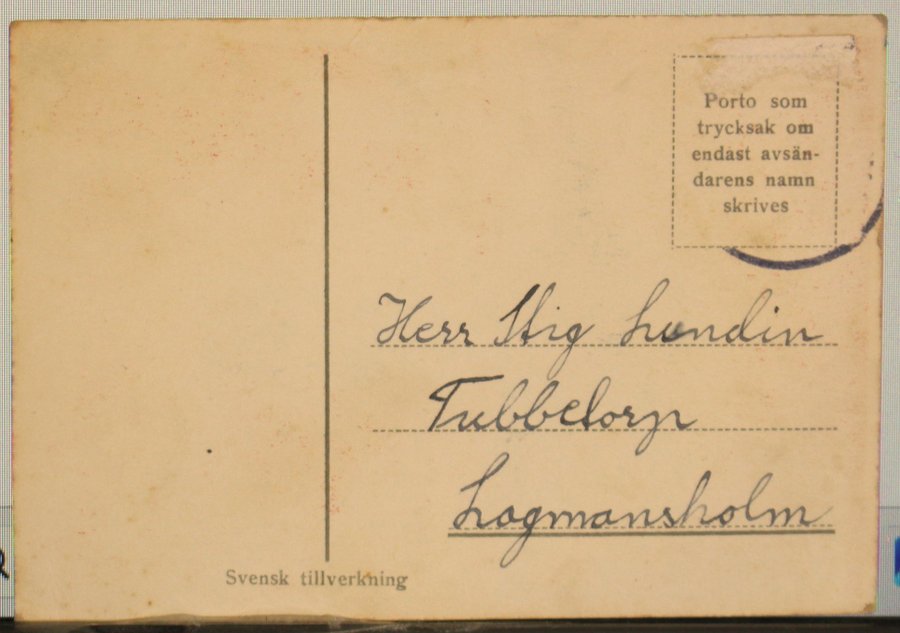 Porto som
trycksak om
endast avsän-
darens namn
skrives
Herr Stig Lundin
Tubbetorp
Lagmansholm
Svensk tillverkning